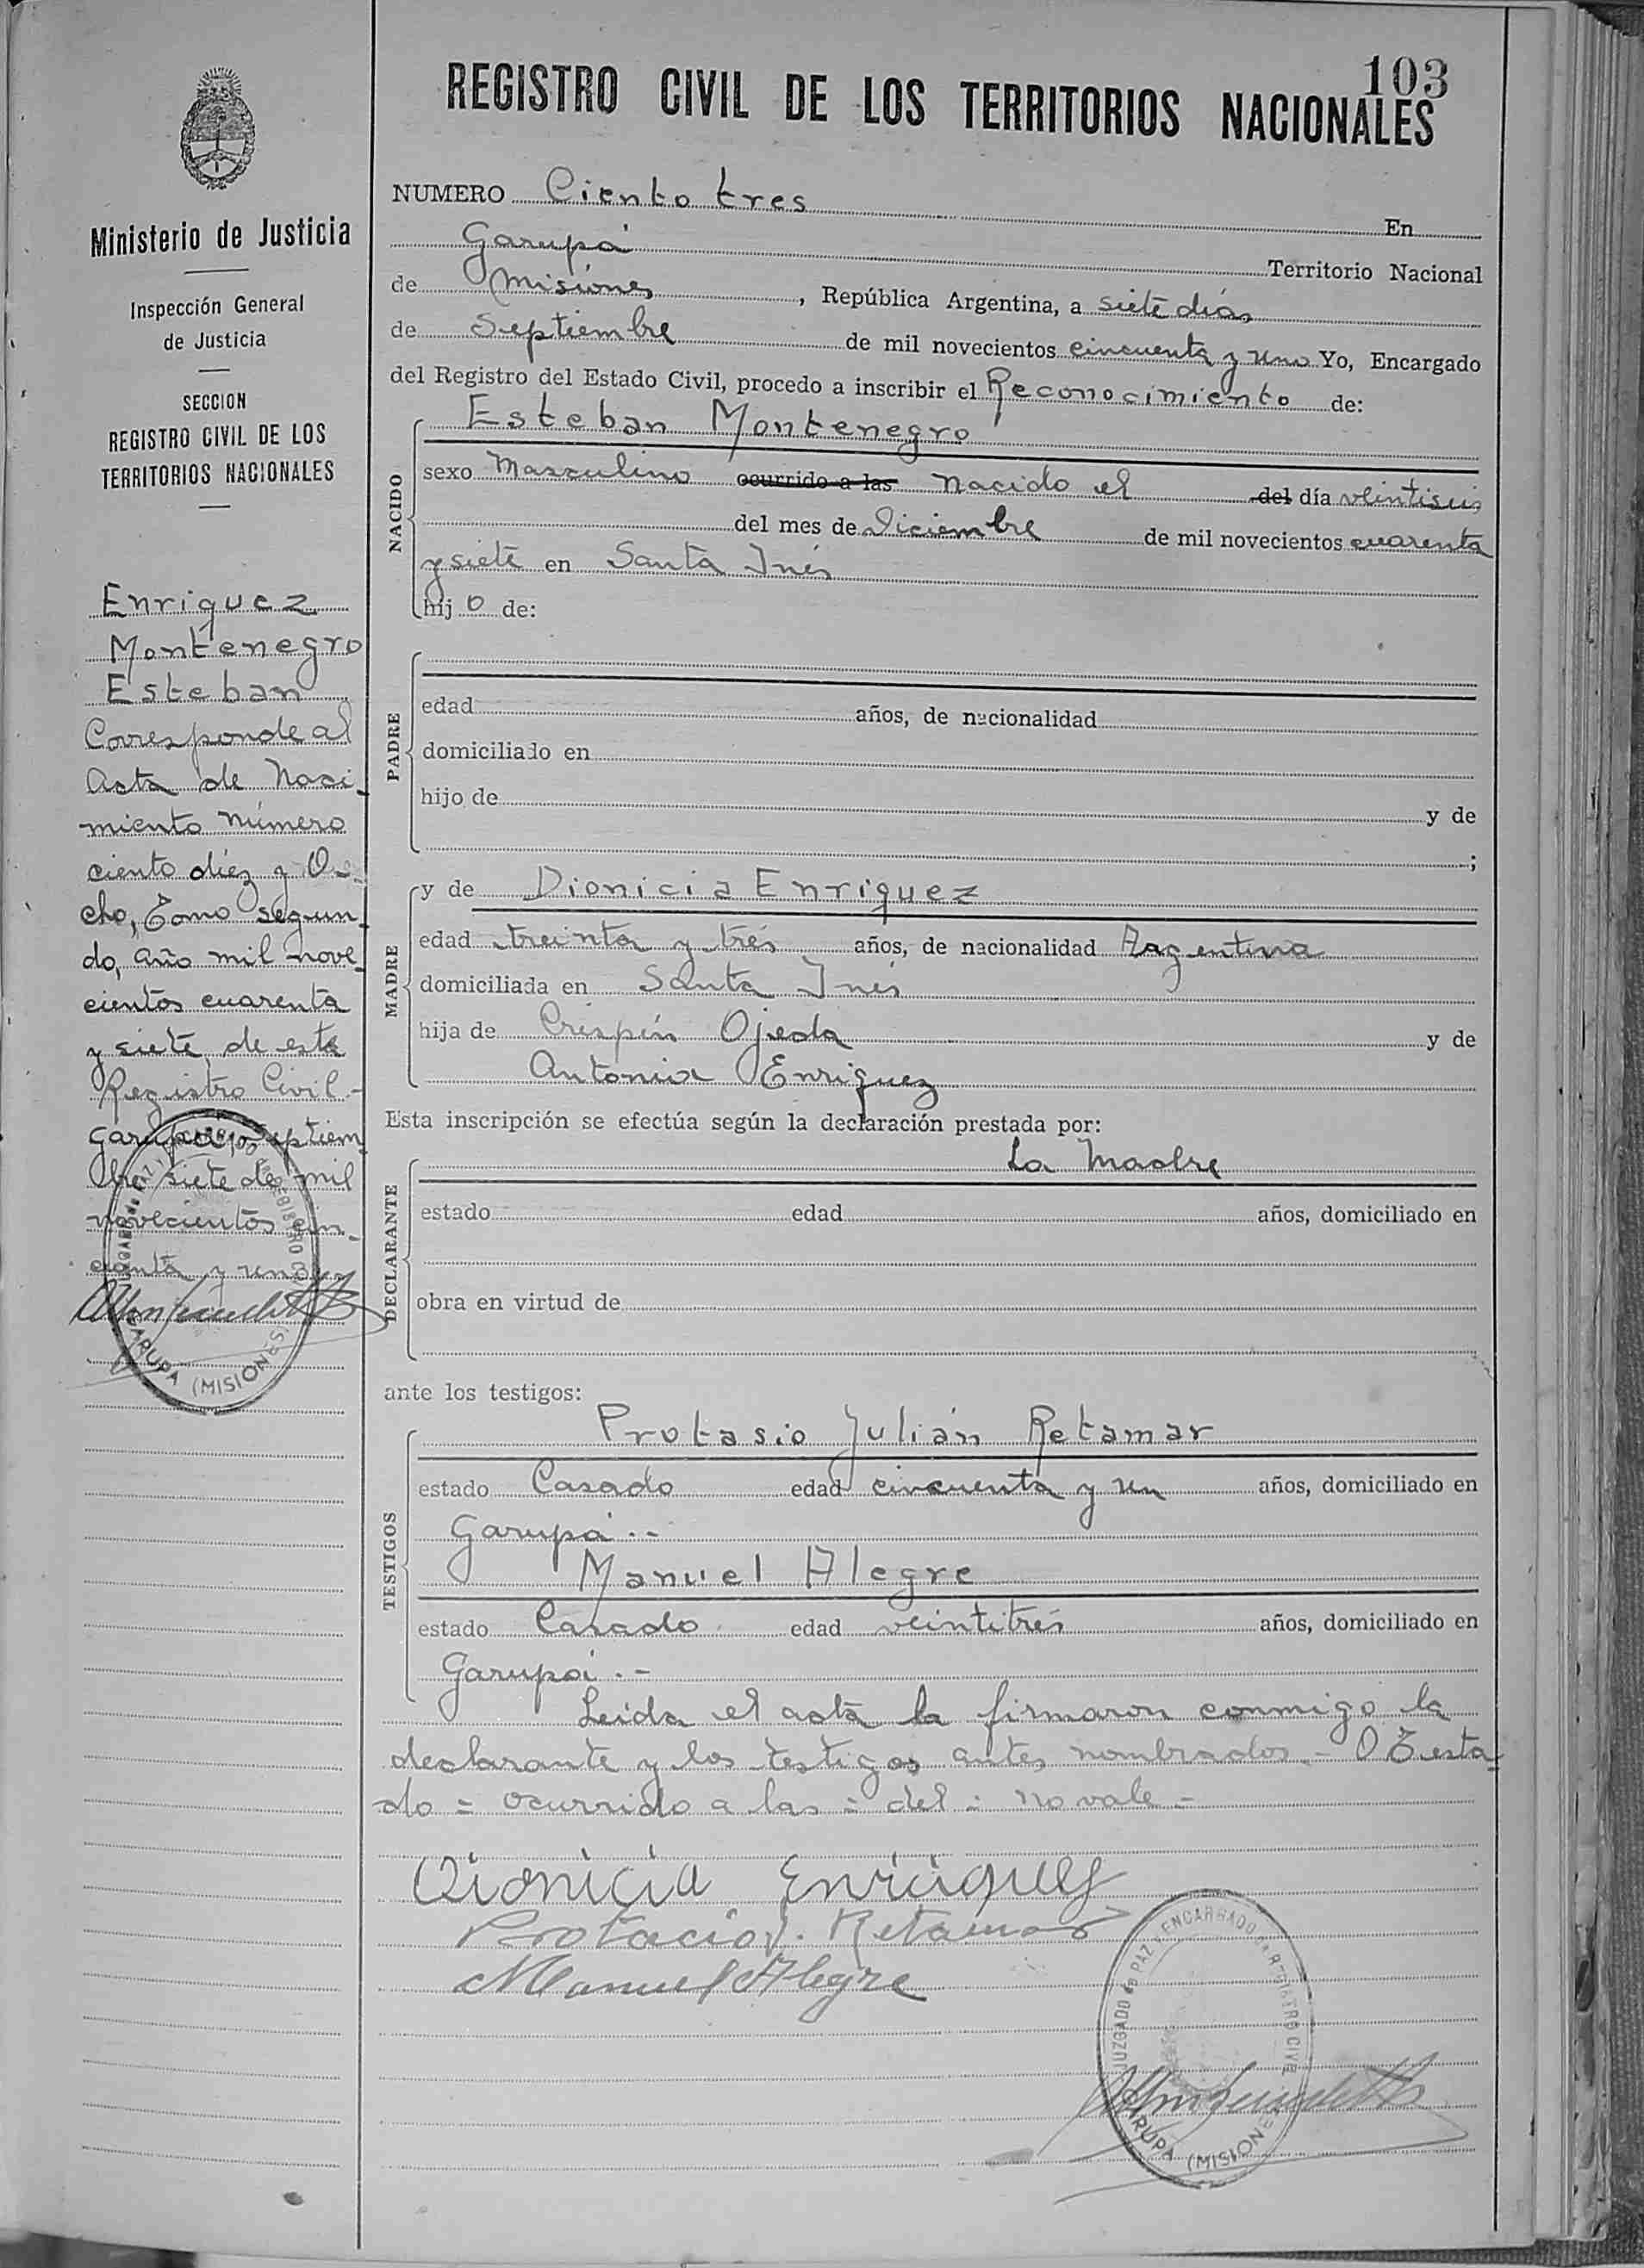 103
REGISTRO CIVIL DE LOS TERRITORIOS NACIONALES
Ministerio de Justicia
Inspección General
de Justicia
SECCION
REGISTRO CIVIL DE LOS
TERRITORIOS NACIONALES
Enriquez
Montenegro
Esteban
Corresponde al
Acta de Naci-
miento número
ciento diez y O-
cho, Tomo segun-
do, año mil nove-
cientos cuarenta
y siete, de este
Registro Civil.-
Garupá, septiem-
bre siete de mil
novecientos cin-
cuenta y uno
JUZGADO de PAZ
GARUPA (MISIONES)
NUMERO Ciento tres En
Garupá Territorio Nacional
de Misiones, República Argentina, a siete días
de Septiembre de mil novecientos cincuenta y uno Yo, Encargado
del Registro del Estado Civil, procedo a inscribir el Reconocimiento de:
NACIDO
Esteban Montenegro
sexo Masculino ocurrido a las nacido el del día veintiseis
del mes de Diciembre de mil novecientos cuarenta
y siete en Santa Inés
hijo de:
PADRE
edad años, de nacionalidad
domiciliado en
hijo de y de
;
MADRE
y de Dionicia Enriquez
edad treinta y trés años, de nacionalidad Argentina
domiciliada en Santa Inés
hija de Crispín Ojeda y de
Antonia Enriquez
Esta inscripción se efectúa según la declaración prestada por:
DECLARANTE
La Madre
estado edad años, domiciliado en
obra en virtud de
ante los testigos:
TESTIGOS
Protasio Julián Retamar
estado Casado edad cincuenta y un años, domiciliado en
Garupá.-
Manuel Alegre
estado Casado edad veintitrés años, domiciliado en
Garupá.-
Leida el acta la firmaron conmigo la
declarante y los testigos antes nombrados.- O Testa-
do = ocurrido a las = del = no vale -
Dionicia Enriquez
Protacio J. Retamar
Manuel Alegre
JUZGADO de PAZ y ENCARGADO del REGISTRO CIVIL
GARUPA (MISIONES)